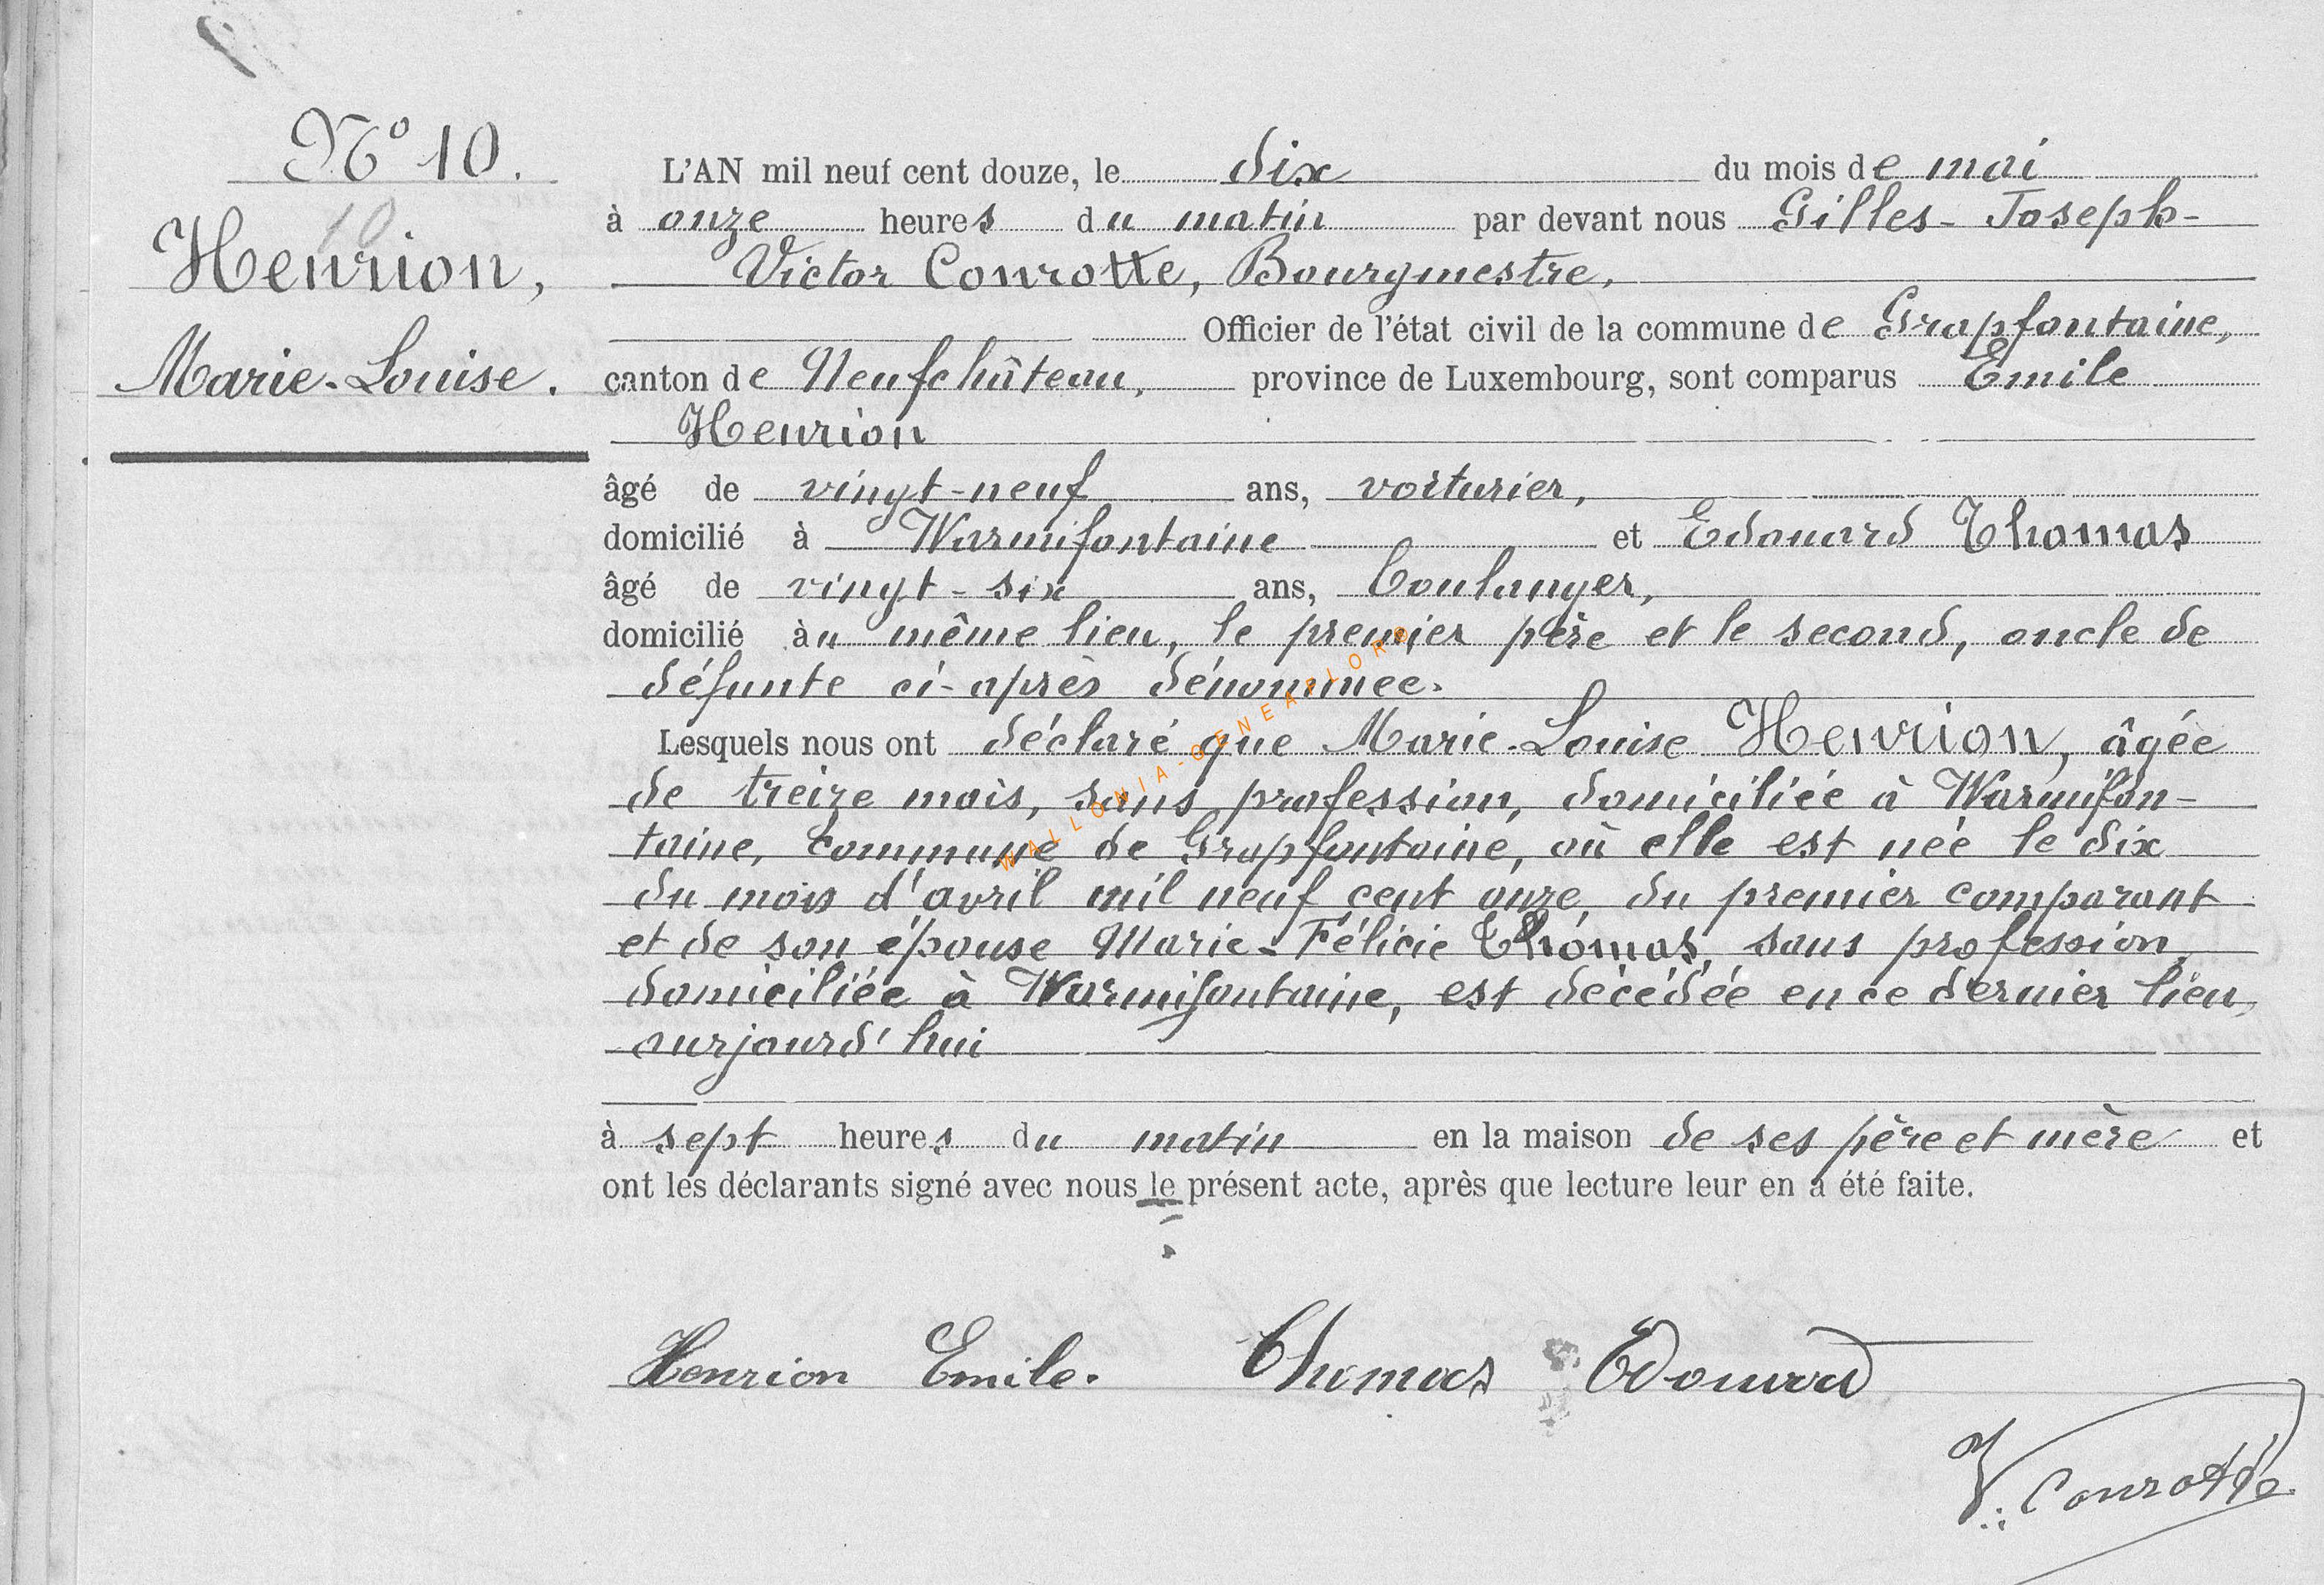 N° 10.
10
Henrion,
Marie-Louise.
L'AN mil neuf cent douze, le dix du mois de mai
à onze heures du matin par devant nous Gilles-Joseph-
Victor Conrotte, Bourgmestre,
Officier de l'état civil de la commune de Grapfontaine,
canton de Neufchâteau, province de Luxembourg, sont comparus Emile
Henrion
âgé de vingt-neuf ans, voiturier,
domicilié à Warmifontaine et Edouard Thomas
âgé de vingt-six ans, boulanger,
domicilié au même lieu, le premier père et le second, oncle de
défunte ci-après dénommée.
Lesquels nous ont déclaré que Marie-Louise Henrion, âgée
de treize mois, sans profession, domiciliée à Warmifon-
taine, commune de Grapfontaine, où elle est née le dix
du mois d'avril mil neuf cent onze, du premier comparant
et de son épouse Marie-Félicie Thomas, sans profession,
domiciliée à Warmifontaine, est décédée en ce dernier lieu,
aurjourd'hui
à sept heures du matin en la maison de ses père et mère et
ont les déclarants signé avec nous le présent acte, après que lecture leur en a été faite.
Henrion Emile. Thomas Edouard
V. Conrotte
WALLONIA-GENEALOR